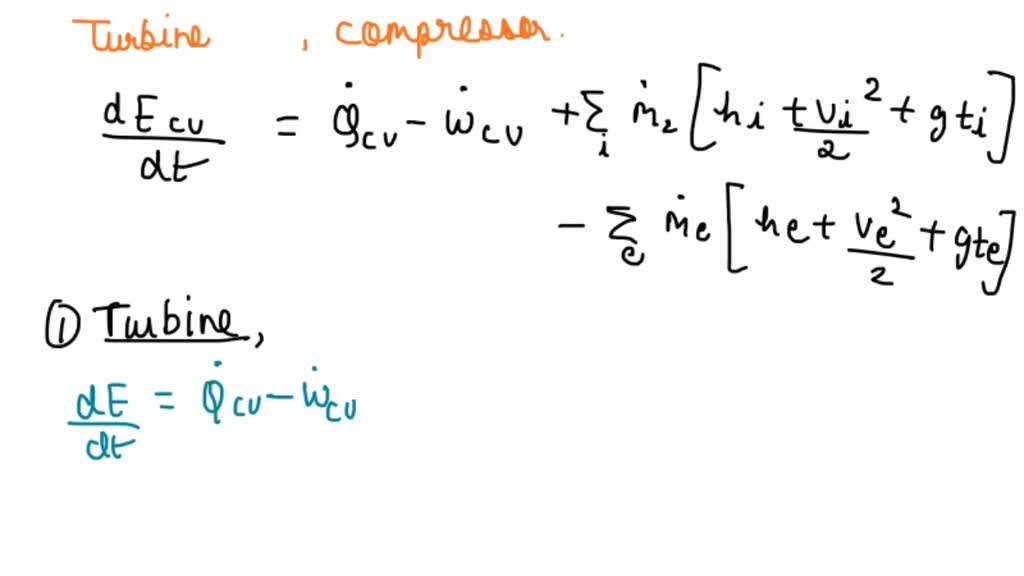 Turbine , compressor.
dE_cv/dt = Q̇_cv - ẇ_cv + Σ_i ṁ_2 [hi + Vi²/2 + gti]
- Σ_e ṁe [he + Ve²/2 + gte]
① Turbine,
dE/dt = Q̇_cv - ẇ_cv